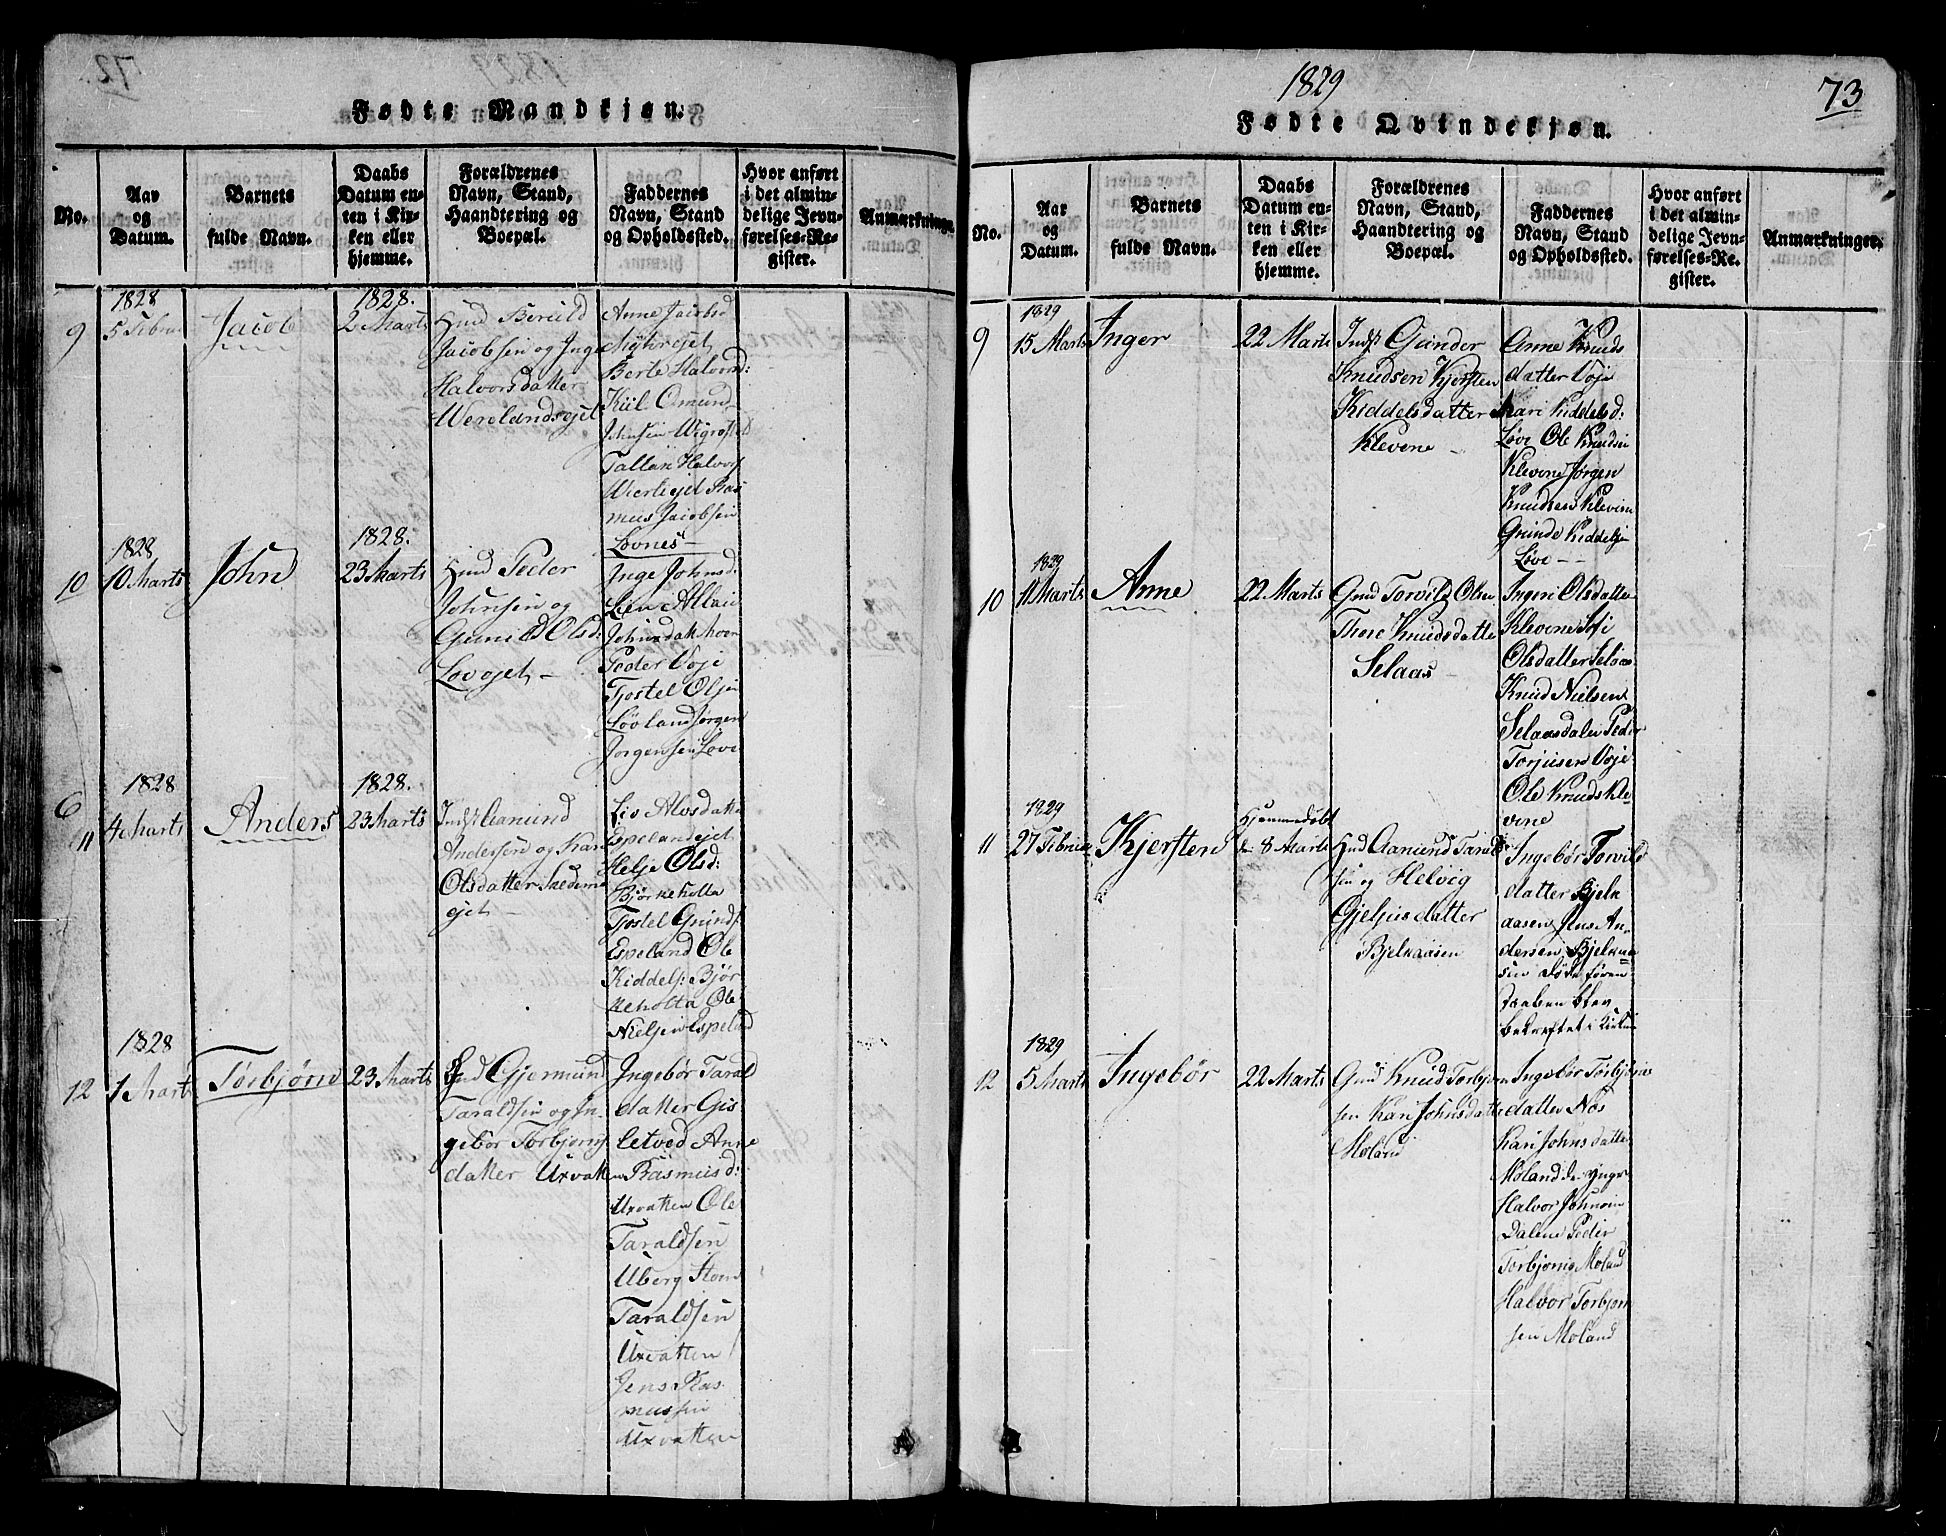 Fødte Mandkjøn.
No.
Aar
og
Datum.
Barnets
fulde Navn.
Daabs
Datum en-
ten i Kir-
ken eller
hjemme.
Forældrenes
Navn, Stand,
Haandtering og
Boepæl.
Faddernes
Navn, Stand
og Opholdssted.
Hvor anført
i det almin-
delige Jevn-
førelses-Re-
gister.
Anmærkninger.
9
1828
5 Febru
Jacob
1828.
2 Marts
Berulld
Jacobsen og Inge
Halvorsdatter
Werelandsejet
Anne Jacobsd
Myhrejet
Berte Halvord:
Kiil Omund
Johnsen Wigrosted
Tallax Halvors
Wierliejet Ras
mus Jacobsen
Lovnes
10
1828
10 Marts
John
1828.
23 Marts
Peder
Johnsen og
Gunild Olsd:
Lovejet
Inge Johnsd:
Lien
Johnsdatt
Peder Voje
Tjostel Olsen
Lövland Jørgen
Jorgensen Love
6
11
1828
4 Marts
Anders
1828.
23 Marts
Indst Aamund
Andersen og Kari
Olsdatter
ejet
Liv Alvsdatt
Espelandejet
Helje Olsd:
Bjørkeholta
Tjostel Grunds
Espeland Ole
Kiddels: Bjør
keholta Ole
Nieljen Espeland
12
1828
1 Marts
Torbjørn
23 Marts
Gjermund
Taraldsen og In-
gebor Torbjørns
datter Uxvatten
Ingebør Tarald
datter Gis
letved Anne
Rasmusd:
Uxvatten Ole
Taraldsen
Uberg
Taraldsen
Uxvatten
Jens Ras
mussen
Uxvatten
1829
73
Fødte Qvindekjøn.
No.
Aar
og
Datum.
Barnets
fulde Navn.
Daabs
Datum en-
ten i Kir-
ken eller
hjemme.
Forældrenes
Navn, Stand,
Haandtering og
Boepæl.
Faddernes
Navn, Stand
og Opholdssted.
Hvor anført
i det almin-
delige Jevn-
førelses-Re-
gister.
Anmærkninger.
9
1829
15 Marts
Inger
22 Marts
Indst Gunder
Knudsen Kjersten
Kiddelsdatter
Klevene
Anne Knuds
datter Voje
Mari Kiddelsd:
Løve Ole Knudsen
Klevene Jørgen
Knudsen Klevene
Grunde Kiddelse
Løve
10
1829
11 Marts
Anne
22 Marts
Gmd Torvild Olsen
Thore Knudsdatte
Selaas
Ingeri Olsdatter
Klevene Sofi
Olsdatter Seloas
Knud Nielsen
Selaasdalen Peder
Torjusen Voje
Ole Knuds Kle-
vene
11
1829
27 Februar
Kjersten
Hjemmedøbt
8 Marts
Aamund Tarald
sen og Helvig
Gjeljusdatter
Bjelkaasen
Ingebør Torvild
datter Bjelk
aasen Jens An-
dersen Bjelkaa
sen døde føren
daaben blev
bekræftet i Kirken
12
1829
5 Marts
Ingebør
22 Marts
Gmd Knud Torbjørn
sen Kari Johnsdatte
Moland
Ingebør Torbjørns
datter Næs
Kari Johnsdatter
Moland den yngre
Halvor Johnsen
Dalene Peder
Torbjørns Moland
Halvor Torbjorn
sen Moland